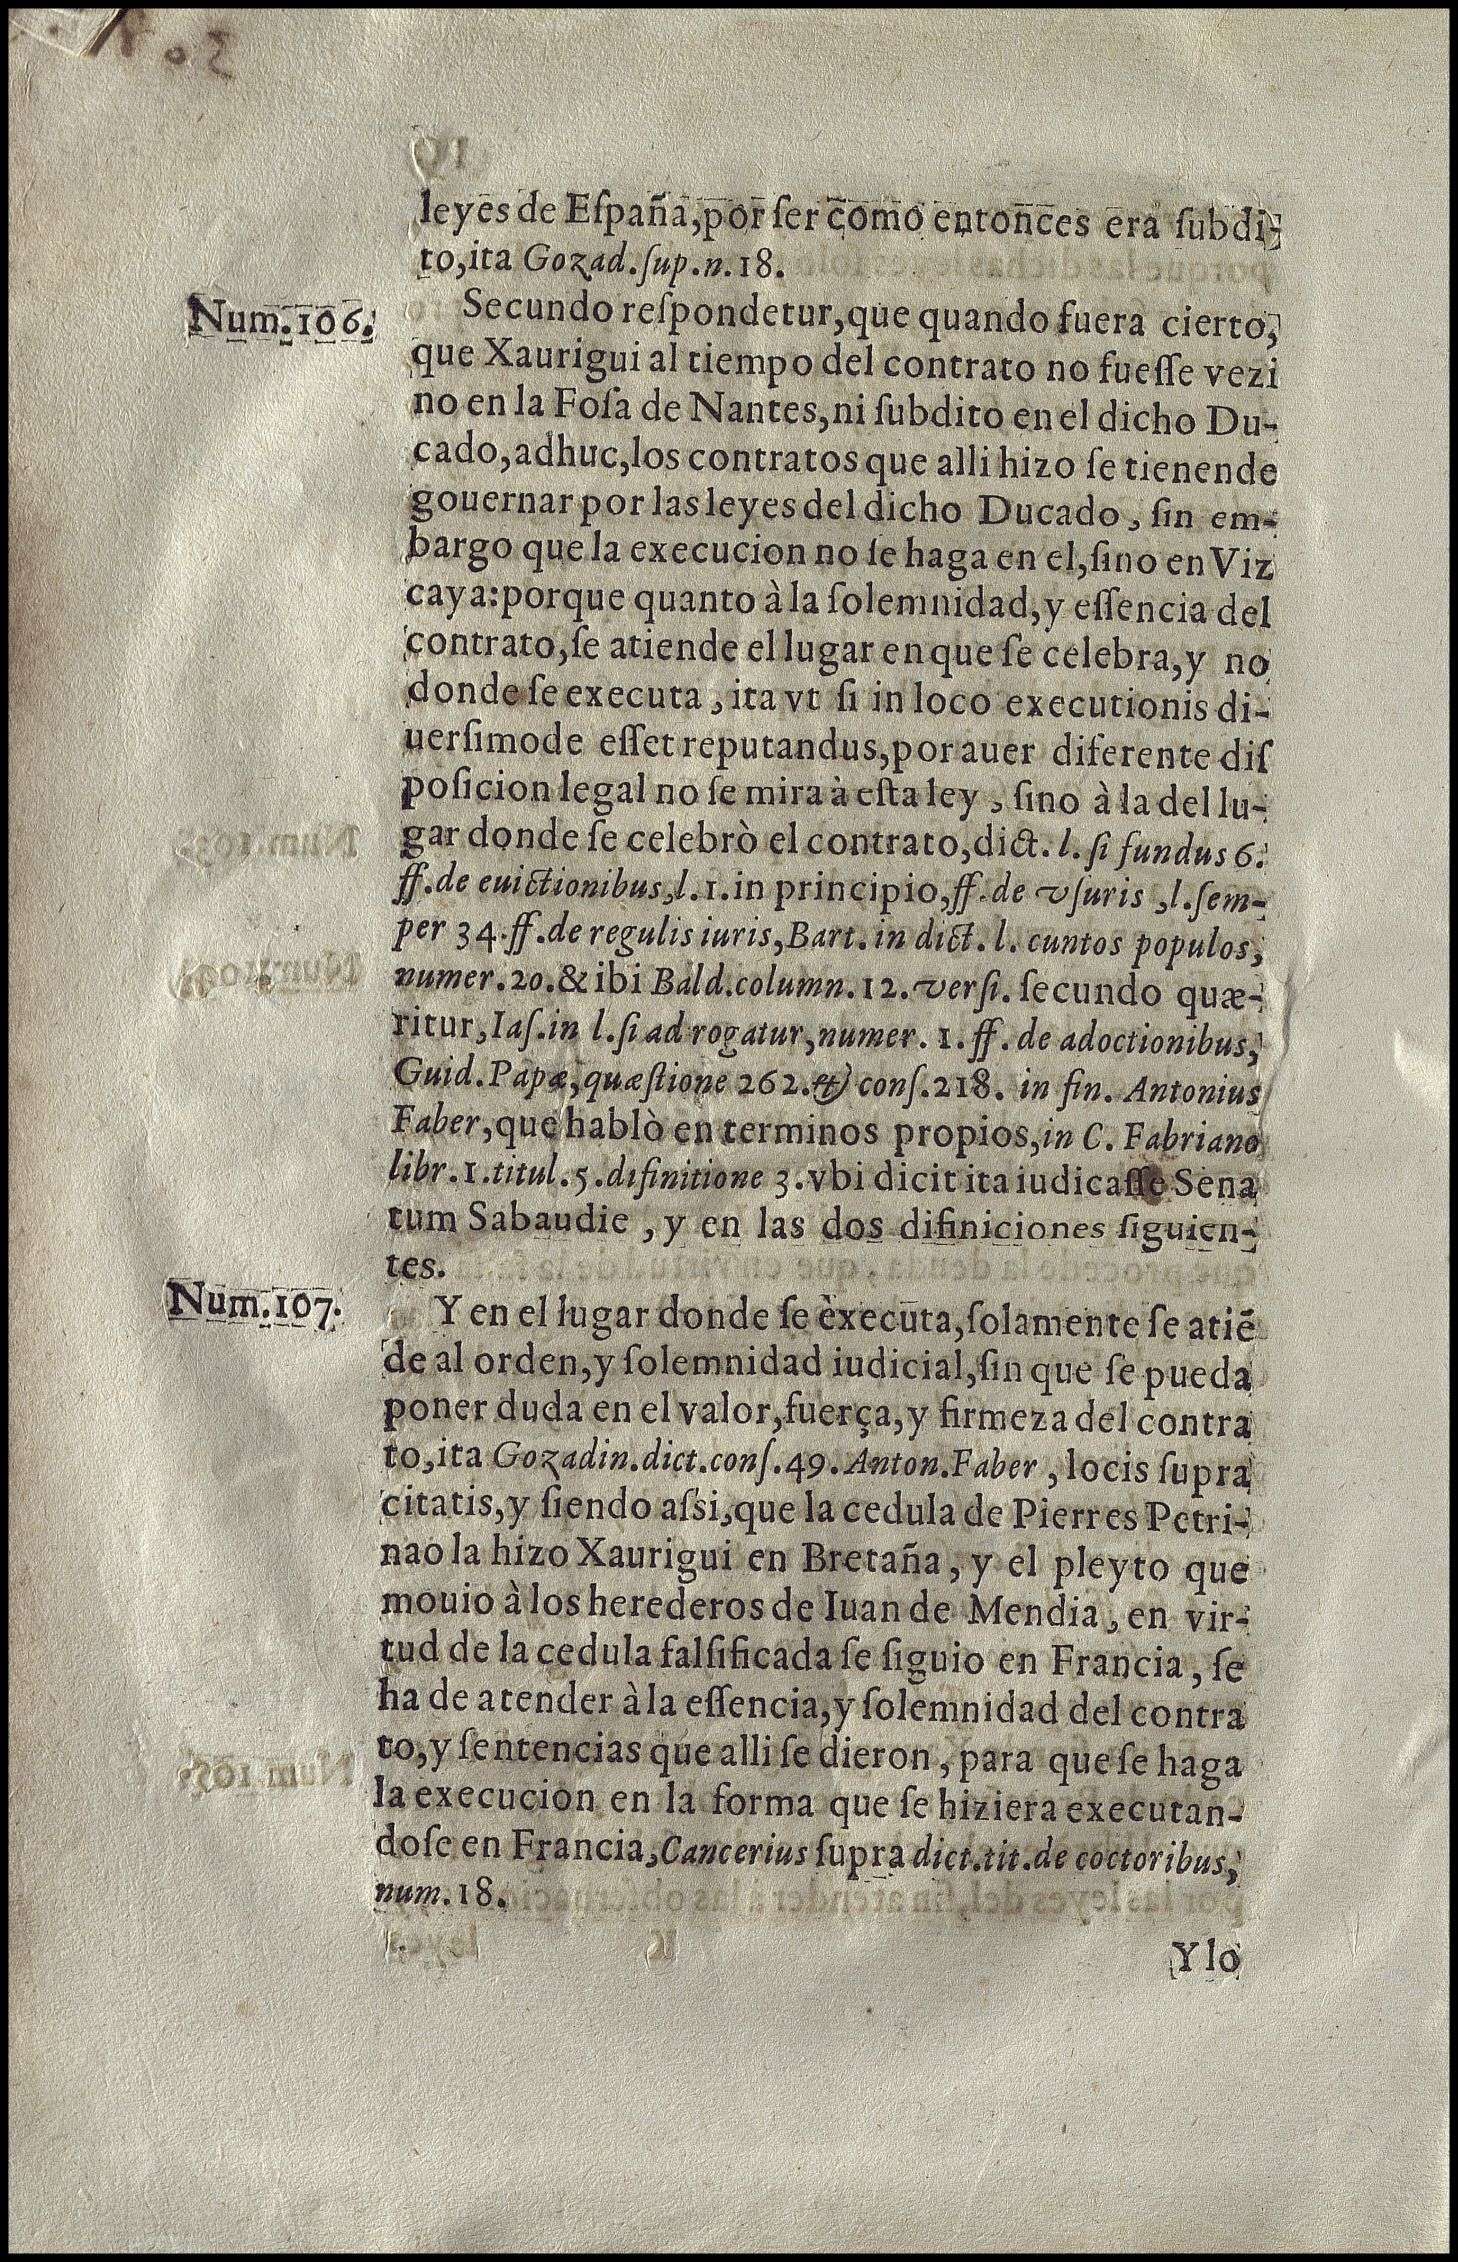 leyes de Eſpaña, por ſer como entonces era ſubdi-
to, ita Gozad. ſup. n. 18.
Num. 106.
Secundo reſpondetur, que quando fuera cierto,
que Xaurigui al tiempo del contrato no fueſſe vezi
no en la Foſa de Nantes, ni ſubdito en el dicho Du-
cado, adhuc, los contratos que alli hizo ſe tienende
gouernar por las leyes del dicho Ducado, ſin em-
bargo que la execucion no ſe haga en el, ſino en Viz
caya: porque quanto à la ſolemnidad, y eſſencia del
contrato, ſe atiende el lugar en que ſe celebra, y no
donde ſe executa, ita vt ſi in loco executionis di-
uerſimode eſſet reputandus, por auer diferente diſ
poſicion legal no ſe mira à eſta ley, ſino à la del lu-
gar donde ſe celebrò el contrato, dict. l. ſi fundus 6.
ff. de euictionibus, l. 1. in principio, ff. de vſuris, l. ſem-
per 34. ff. de regulis iuris, Bart. in dict. l. cuntos populos,
numer. 20. & ibi Bald. column. 12. verſi. ſecundo quæ-
ritur, Iaſ. in l. ſi ad rogatur, numer. 1. ff. de adoctionibus,
Guid. Papæ, quæſtione 262. & conſ. 218. in fin. Antonius
Faber, que hablò en terminos propios, in C. Fabriano
libr. 1. titul. 5. difinitione 3. vbi dicit ita iudicaſſe Sena
tum Sabaudie, y en las dos difiniciones ſiguien-
tes.
Num. 107.
Y en el lugar donde ſe èxecuta, ſolamente ſe atiẽ
de al orden, y ſolemnidad iudicial, ſin que ſe pueda
poner duda en el valor, fuerça, y firmeza del contra
to, ita Gozadin. dict. conſ. 49. Anton. Faber, locis ſupra
citatis, y ſiendo aſsi, que la cedula de Pierres Petri-
nao la hizo Xaurigui en Bretaña, y el pleyto que
mouio à los herederos de Iuan de Mendia, en vir-
tud de la cedula falſificada ſe ſiguio en Francia, ſe
ha de atender à la eſſencia, y ſolemnidad del contra
to, y ſentencias que alli ſe dieron, para que ſe haga
la execucion en la forma que ſe hiziera executan-
doſe en Francia, Cancerius ſupra dict. tit. de coctoribus,
num. 18.
Y lo